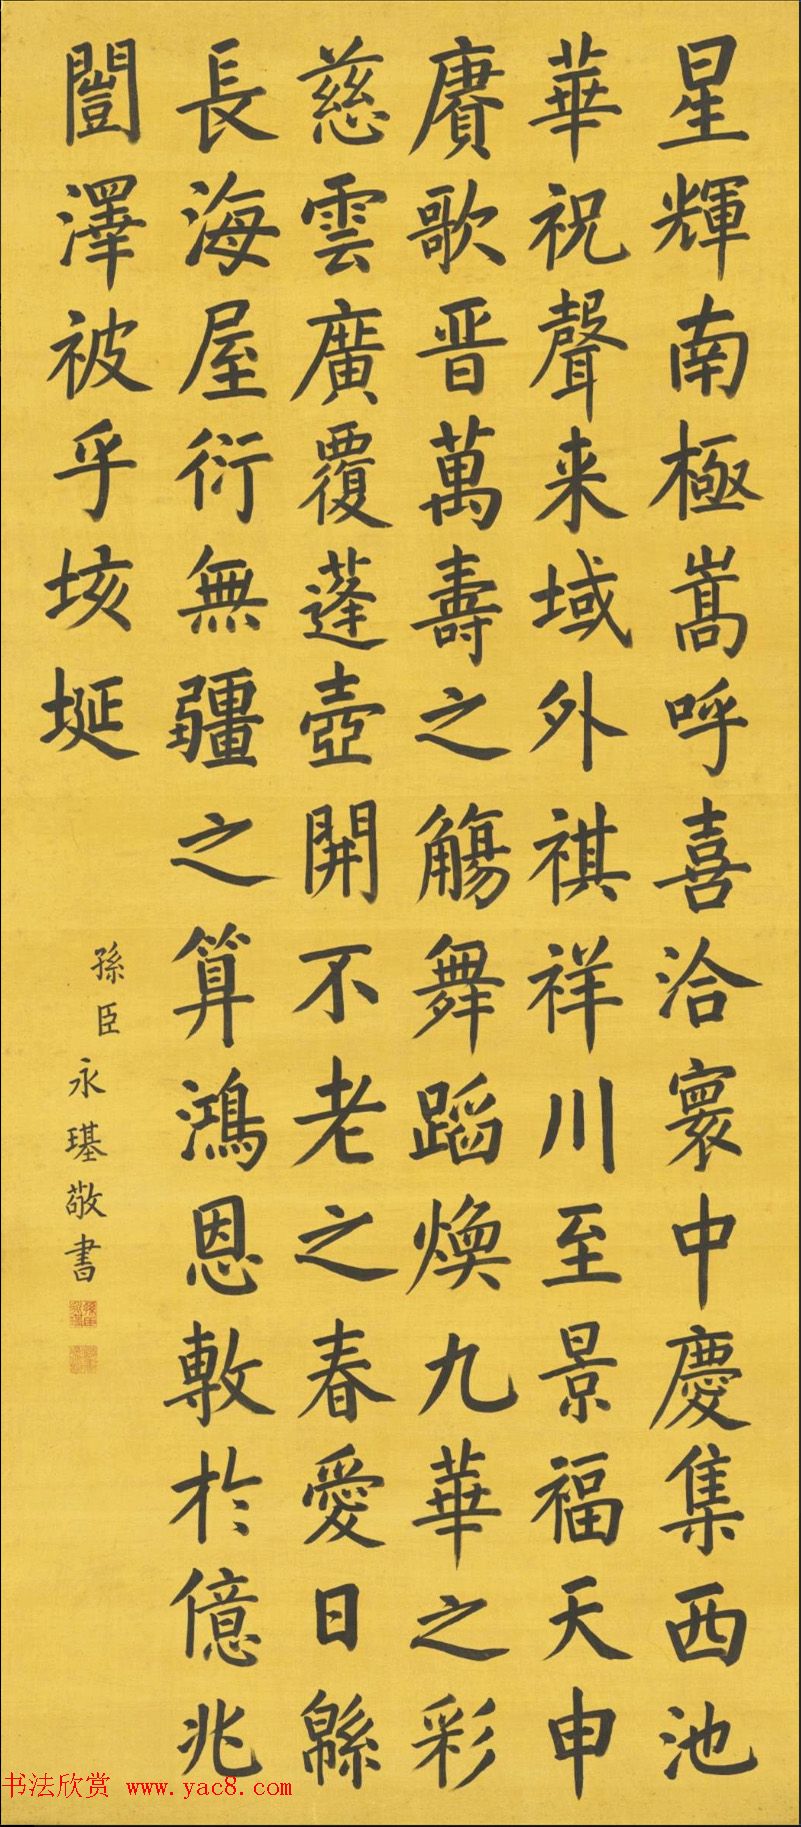 星輝南極嵩呼喜洽寰中慶集西池
華祝聲来域外祺祥川至景福天申
賡歌晋萬壽之觴舞蹈煥九華之彩
慈雲廣覆蓬壺開不老之春愛日緜
長海屋衍無疆之算鴻恩敷於億兆
闓澤被乎垓埏
孫臣永璂敬書
书法欣赏 www.yac8.com